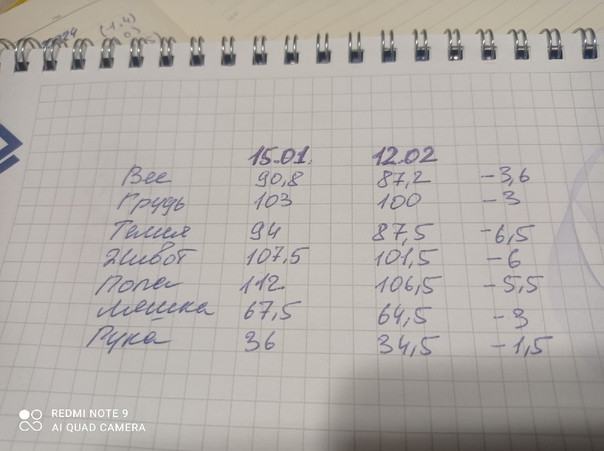 15.01. 12.02
Вес 90,8 87,2 -3,6
Грудь 103 100 -3
Талия 94 87,5 -6,5
Живот 107,5 101,5 -6
Попа 112 106,5 -5,5
Ляшка 67,5 64,5 -3
Рука 36 34,5 -1,5
REDMI NOTE 9
AI QUAD CAMERA